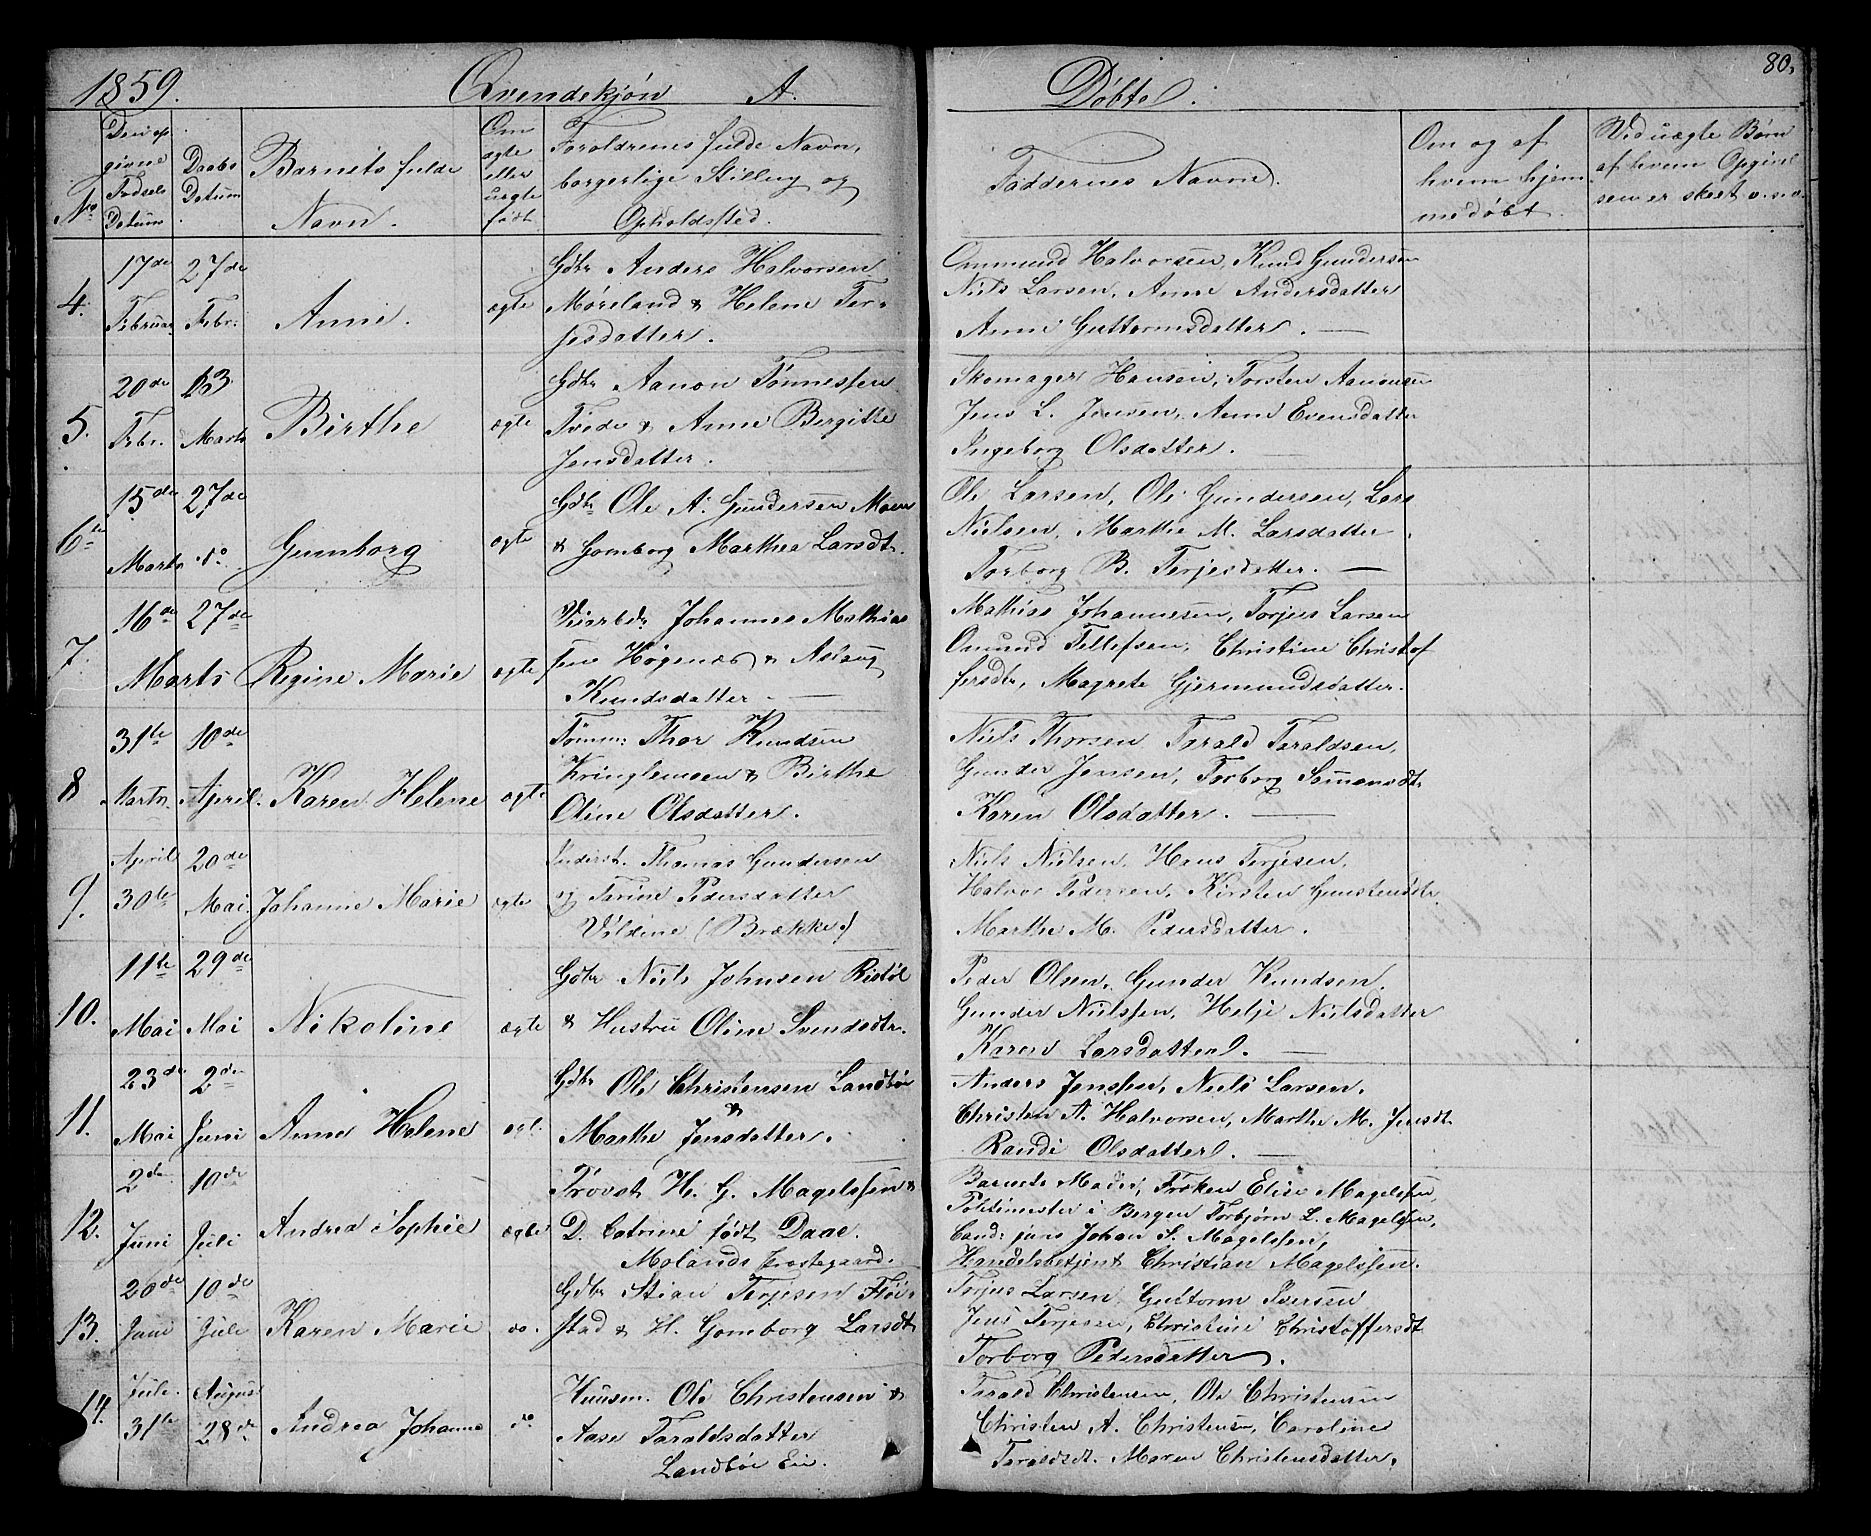 1859. Qvindekjøn A. Døbte. 80.
No
Den op
givne
Fødsels
Datum
Daabs
Datum
Barnets fulde
Navn.
Om
ægte
eller
uægte
født
Forældrenes fulde Navn,
borgerlige Stilling og
Opholdssted.
Faddernes Navne.
Om og af
hvem hjem
medøbt.
Ved uægte Børn
af hvem Opgivel
sen er skeet o.s.v.
4. 17de Februar 27de Febr: Anne. ægte
Gdbr Anders Halvorsen
Møreland & Helene Ter-
jesdatter.
Ommund Halvorsen, Knud Gundersen
Niels Larsen, Anne Andersdatter
Anne Guttormsdatter. —
5. 20de Febr. 13 Marts Birthe ægte
Gdbr Aanon Tønnessen
Tvede & Anne Bergitte
Jensdatter.
Skomager Hansen, Torsten Aanonsen
Jens L. Jensen, Anne Evensdatter
Ingeborg Olsdatter.
6te 15de Marts 27de do Gunborg ægte
Gdbr Ole A. Gundersen Moen
& Gomborg Marthea Larsdtr.
Ole Larsen, Ole Gundersen, Lars
Nielsen, Marthe M. Larsdatter
Torborg B. Terjesdatter. —
7. 16de 27de Marts Regine Marie ægte
Johannes Mathias
sen Høgenes & Aslaug
Knudsdatter. —
Mathias Johannesen, Torjus Larsen
Omund Tellefsen, Christine Christof
fersdtr, Magrete Gjermundsdatter.
8 31te Marts 10de April. Karen Helene ægte
Tømm: Thor Knudsen
Kringlemoen & Birthe
Oline Olsdatter.
Niels Thorsen Tarald Taraldsen,
Gunder Jensen, Torborg Samansdt.
Karen Olsdatter. —
9. April 30te 20de Mai. Johanne Marie ægte
Inderst. Thomas Gundersen
og Tarine Pedersdatter
Vildine (Brække)
Niels Nielsen, Hans Terjesen,
Halvor Pedersen, Kirsten Gunstensdtr.
Marthe M. Pedersdatter.
10. 11te Mai 29de Mai Nikoline ægte
Gdbr Niels Johnsen Ristøl
& Hustru Oline Svendsdtr.
Peder Olsen, Gunder Knudsen,
Gunder Nielssen, Helje Nielsdatter
Karen Larsdatter. —
11. 23de Mai 2den Juni Anne Helene ægt.
Gdbr Ole Christensen Landbøe
&
Marthe Jensdatter.
Anders Jenssen, Niels Larsen,
Christen A. Halvorsen, Marthe M. Jensdt.
Randi Olsdatter. —
12. 2de Juni 10de Juli Andrea Sophie ægte
Provst H. G. Magelssen &
D. Catrine født Daae.
Molands Prostegaard.
Barnets Moder, Frøken Elise Magelssen,
Politimester i Bergen Torbjørn L. Magelssen,
Cand: juris Johan S. Magelssen,
Handelsbetjent Christian Magelssen.
13. 20de Juni 10de Juli Karen Marie do.
Gdbr Stian Terjesen Fløi-
stad & H. Gomborg Larsdt
Torjus Larsen Guttorm Iversen
Jens Terjesen, Christine Christoffersdt
Torborg Pedersdatter.
14. Juli. 31te August 28de Andrea Johanne do
Huusm. Ole Christensen &
Aase Taraldsdatter
Landbøe Eie.
Tarald Christensen, Ole Christensen
Christen A. Christensen, Caroline
Taraldsdt. Maren Christensdatter.